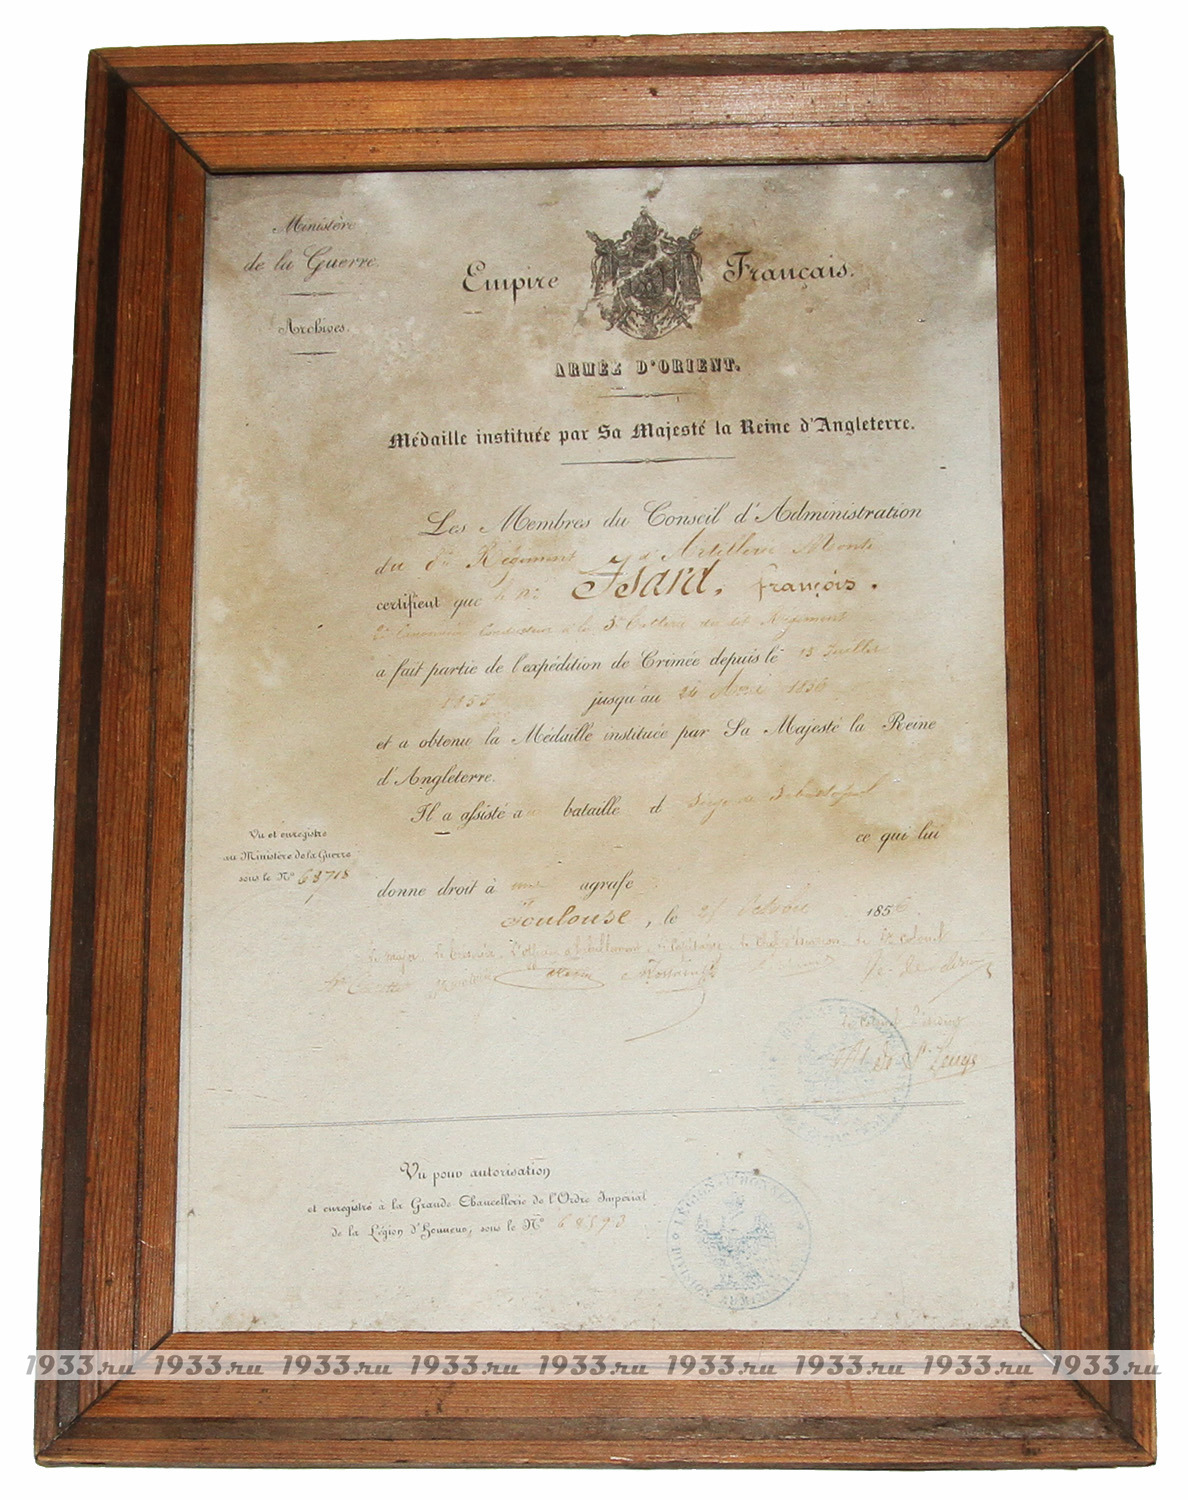 Ministère
de la Guerre.
Archives.
Empire Français.
ARMÉE D'ORIENT.
Médaille instituée par Sa Majesté la Reine d'Angleterre.
Les Membres du Conseil d'Administration
du 8e Régiment d'Artillerie Monté
certifient que le Isard, françois.
2e Canonnier Conducteur à la 5e Batterie du dit Régiment
a fait partie de l'expédition de Crimée depuis le 15 Juillet
1855 jusqu'au 24 Avril 1856
et a obtenu la Médaille instituée par Sa Majesté la Reine
d'Angleterre.
Il a assisté a bataille d Siège de Sébastopol
ce qui lui
donne droit à une agrafe
Toulouse, le Octobre 1856.
Vu et enregistré
au Ministère de la Guerre
sous le N° 68718
Le Major Le Trésorier L'Officier d'habillement Le Capitaine Le Chef d'Escadron Le Lt Colonel
Le Colonel Président
Vu pour autorisation
et enregistré à la Grande Chancellerie de l'Ordre Impérial
de la Légion d'Honneur, sous le N° 68593
LÉGION D'HONNEUR
1933.ru 1933.ru 1933.ru 1933.ru 1933.ru 1933.ru 1933.ru 1933.ru 1933.ru